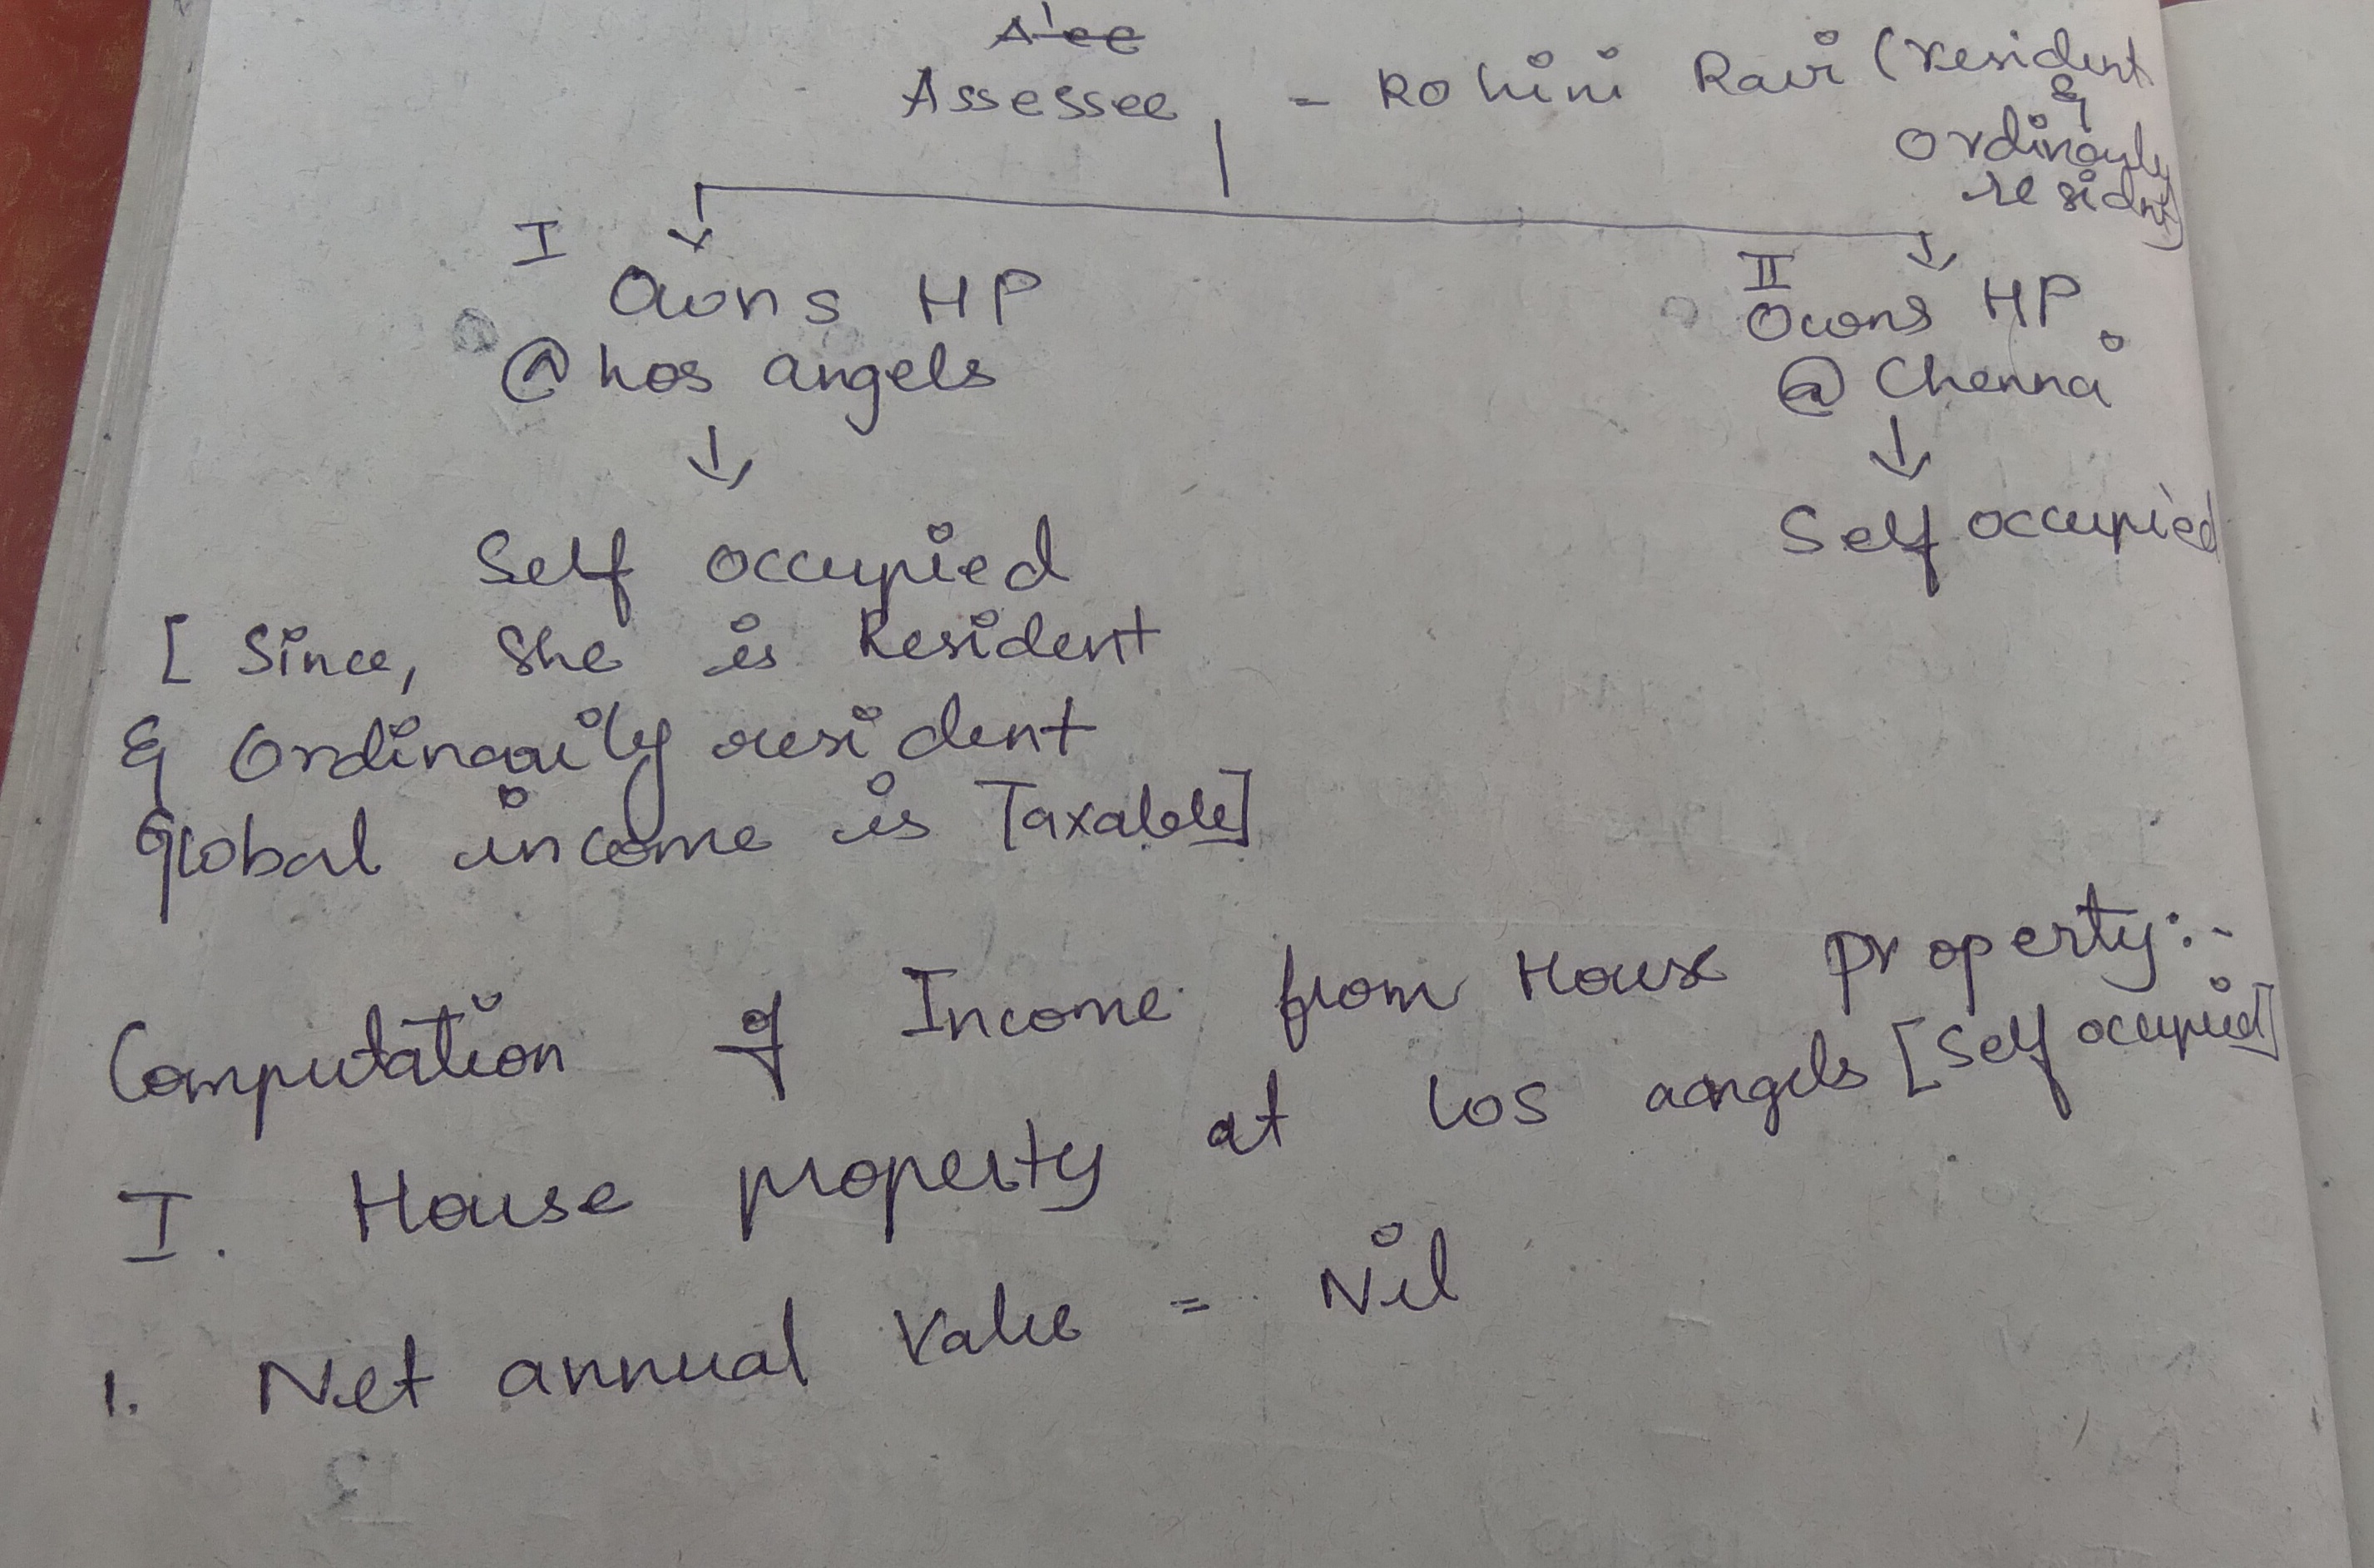 A'ee
Assessee - Rohini Ravi (resident
&
ordinarily
resident)
I
Owns HP
@ Los angels
Self occupied
[ Since, She is Resident
& Ordinarily resident
Global income is Taxable]
II
Owns HP
@ Chennai
Self occupied
Computation of Income from House property:-
I. House property at Los angels [Self occupied]
1. Net annual Value = Nil